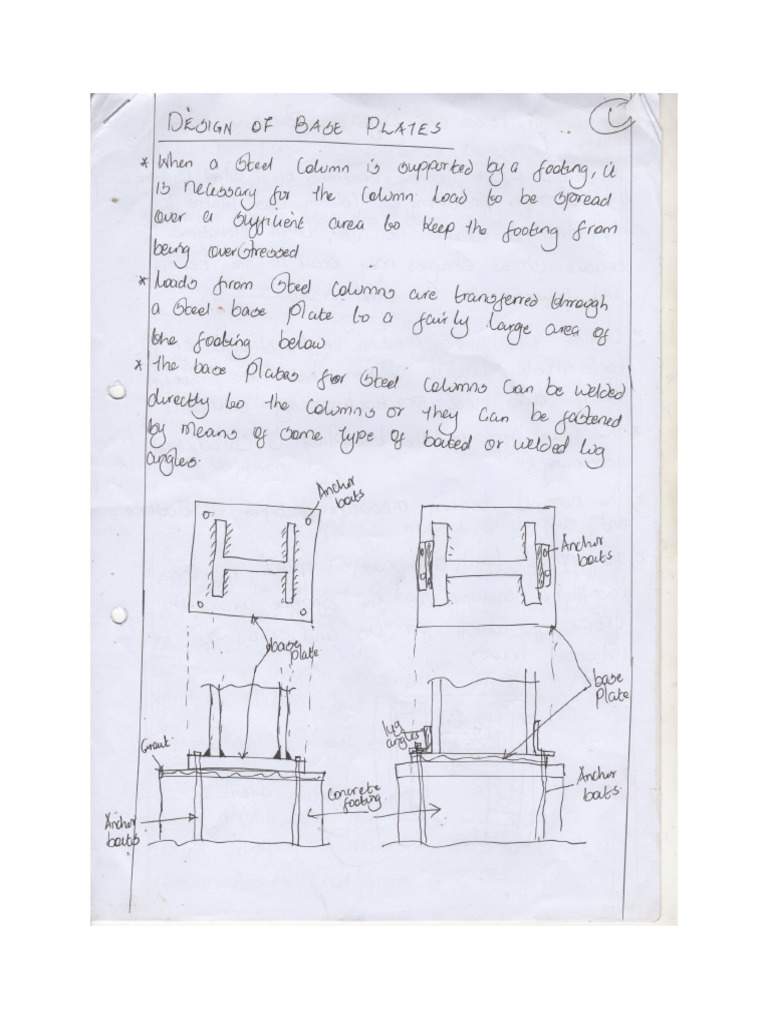 DESIGN OF BASE PLATES
1
* When a steel column is supported by a footing, it
is necessary for the column load to be spread
over a sufficient area to keep the footing from
being overstressed
* Loads from steel columns are transferred through
a steel base plate to a fairly large area of
the footing below
* The base plates for steel columns can be welded
directly to the columns or they can be fastened
by means of some type of bolted or welded lug
angles.
Anchor
bolts
Anchor
bolts
base
plate
base
plate
lug
angles
Grout
Concrete
footing
Anchor
bolts
Anchor
bolts